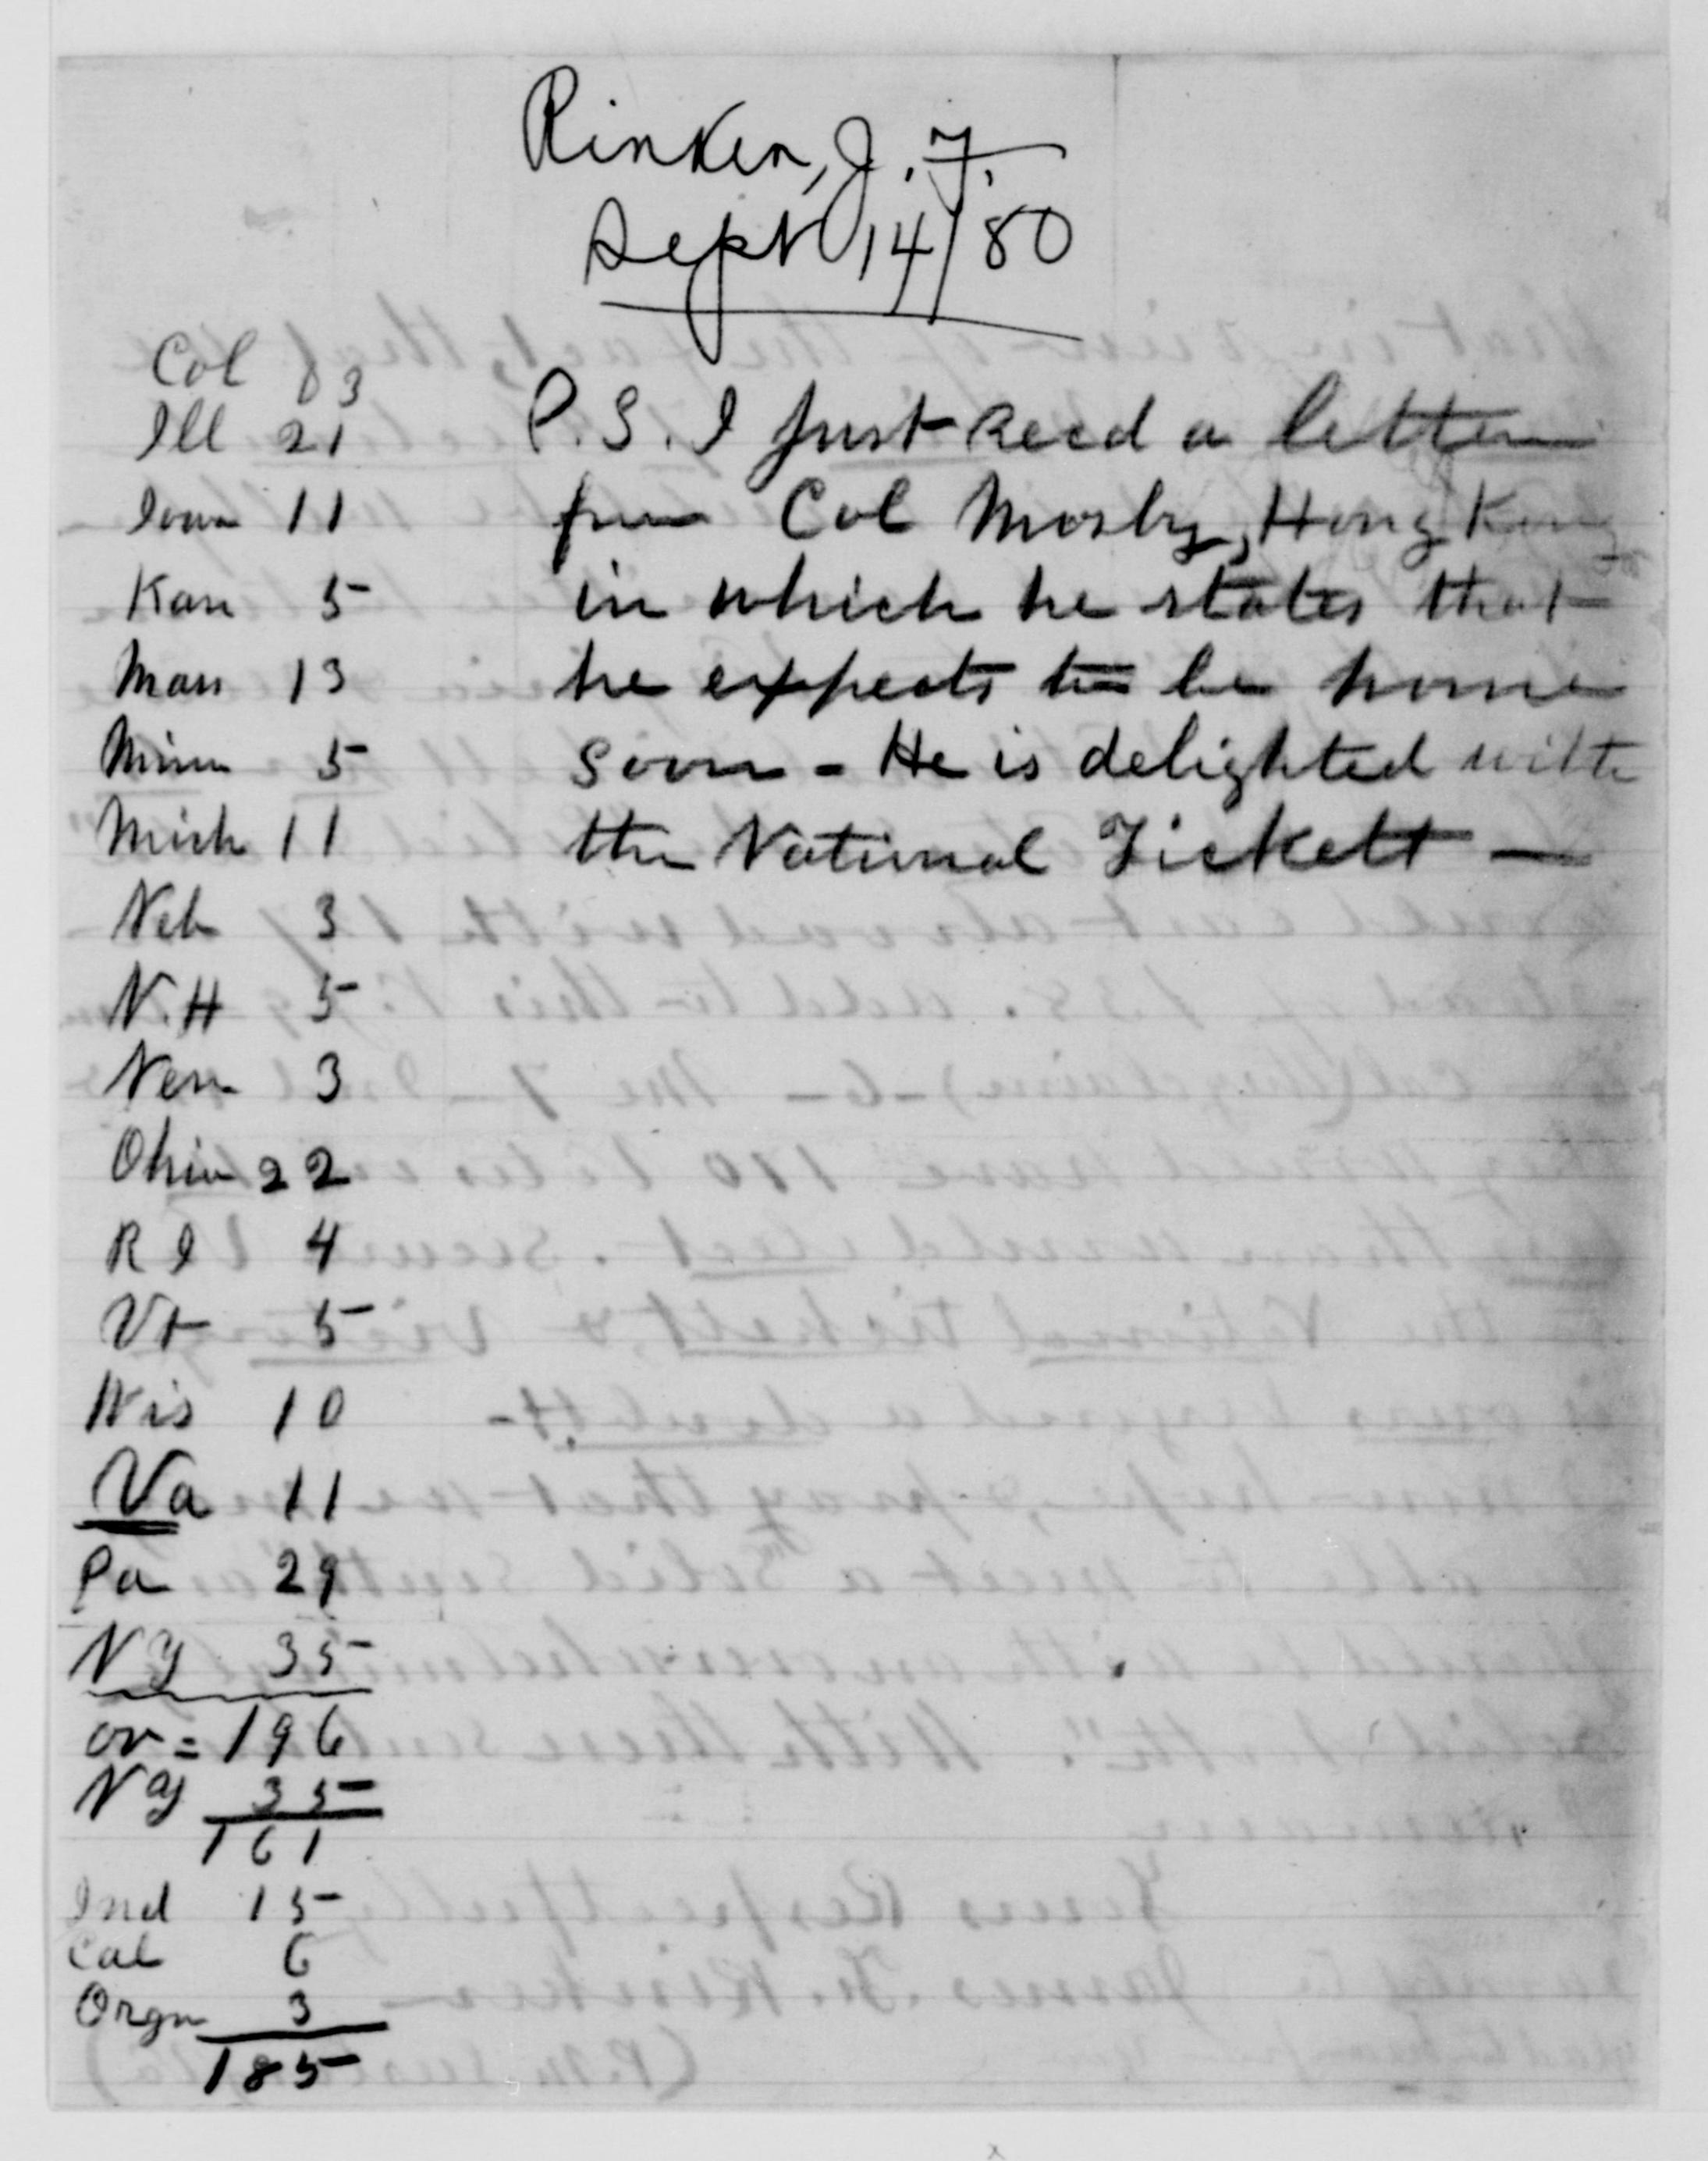 Rinker, J. F.
Sept 14/80
Col 3
Ill 21
Iowa 11
Kan 5
Mass 13
Minn 5
Mich 11
Neb 3
N.H 5
Nev 3
Ohio 22
R I 4
Vt 5
Wis 10
Va 11
Pa 29
NY 35
or = 196
NY 35
161
Ind 15
Cal 6
Orgn 3
185
P.S. I just Recd a letter
from Col Mosby, Hong Kong
in which he states that
he expects to be home
soon - He is delighted with
the National Tickett —